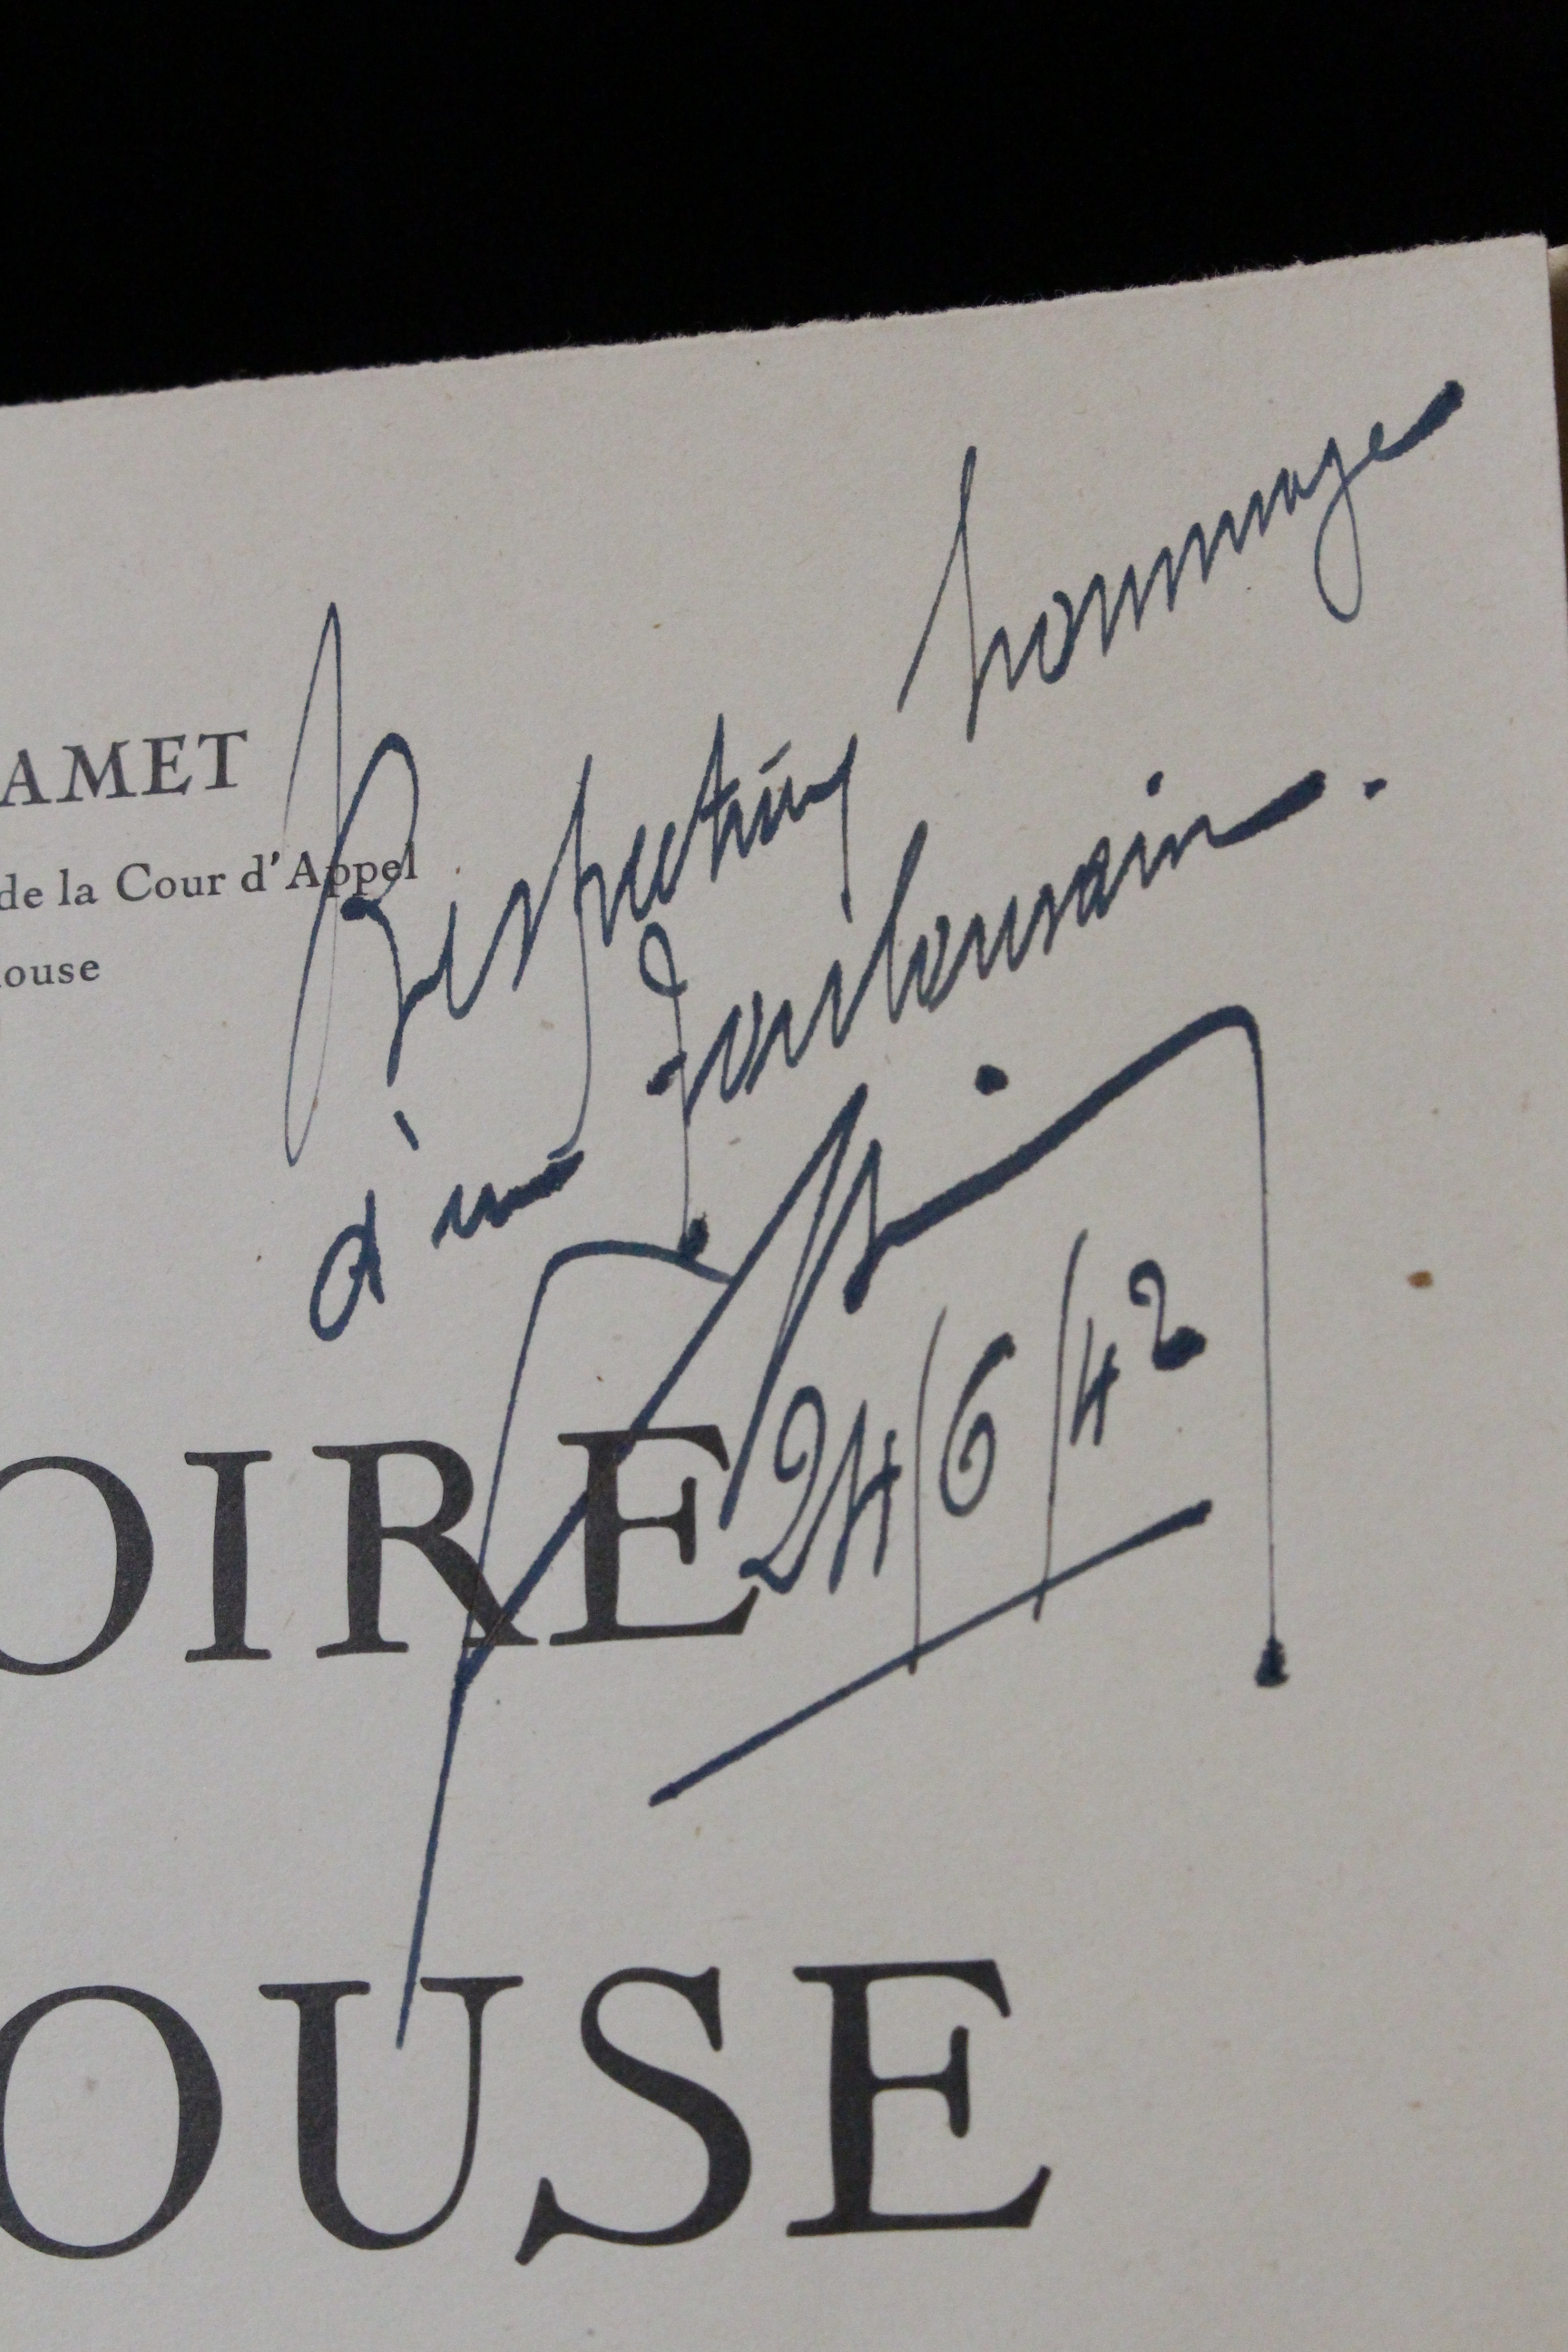 Respectueux hommage
AMET
de la Cour d'Appel
louse
d'un Toulousain.
24/6/42
OIRE
OUSE